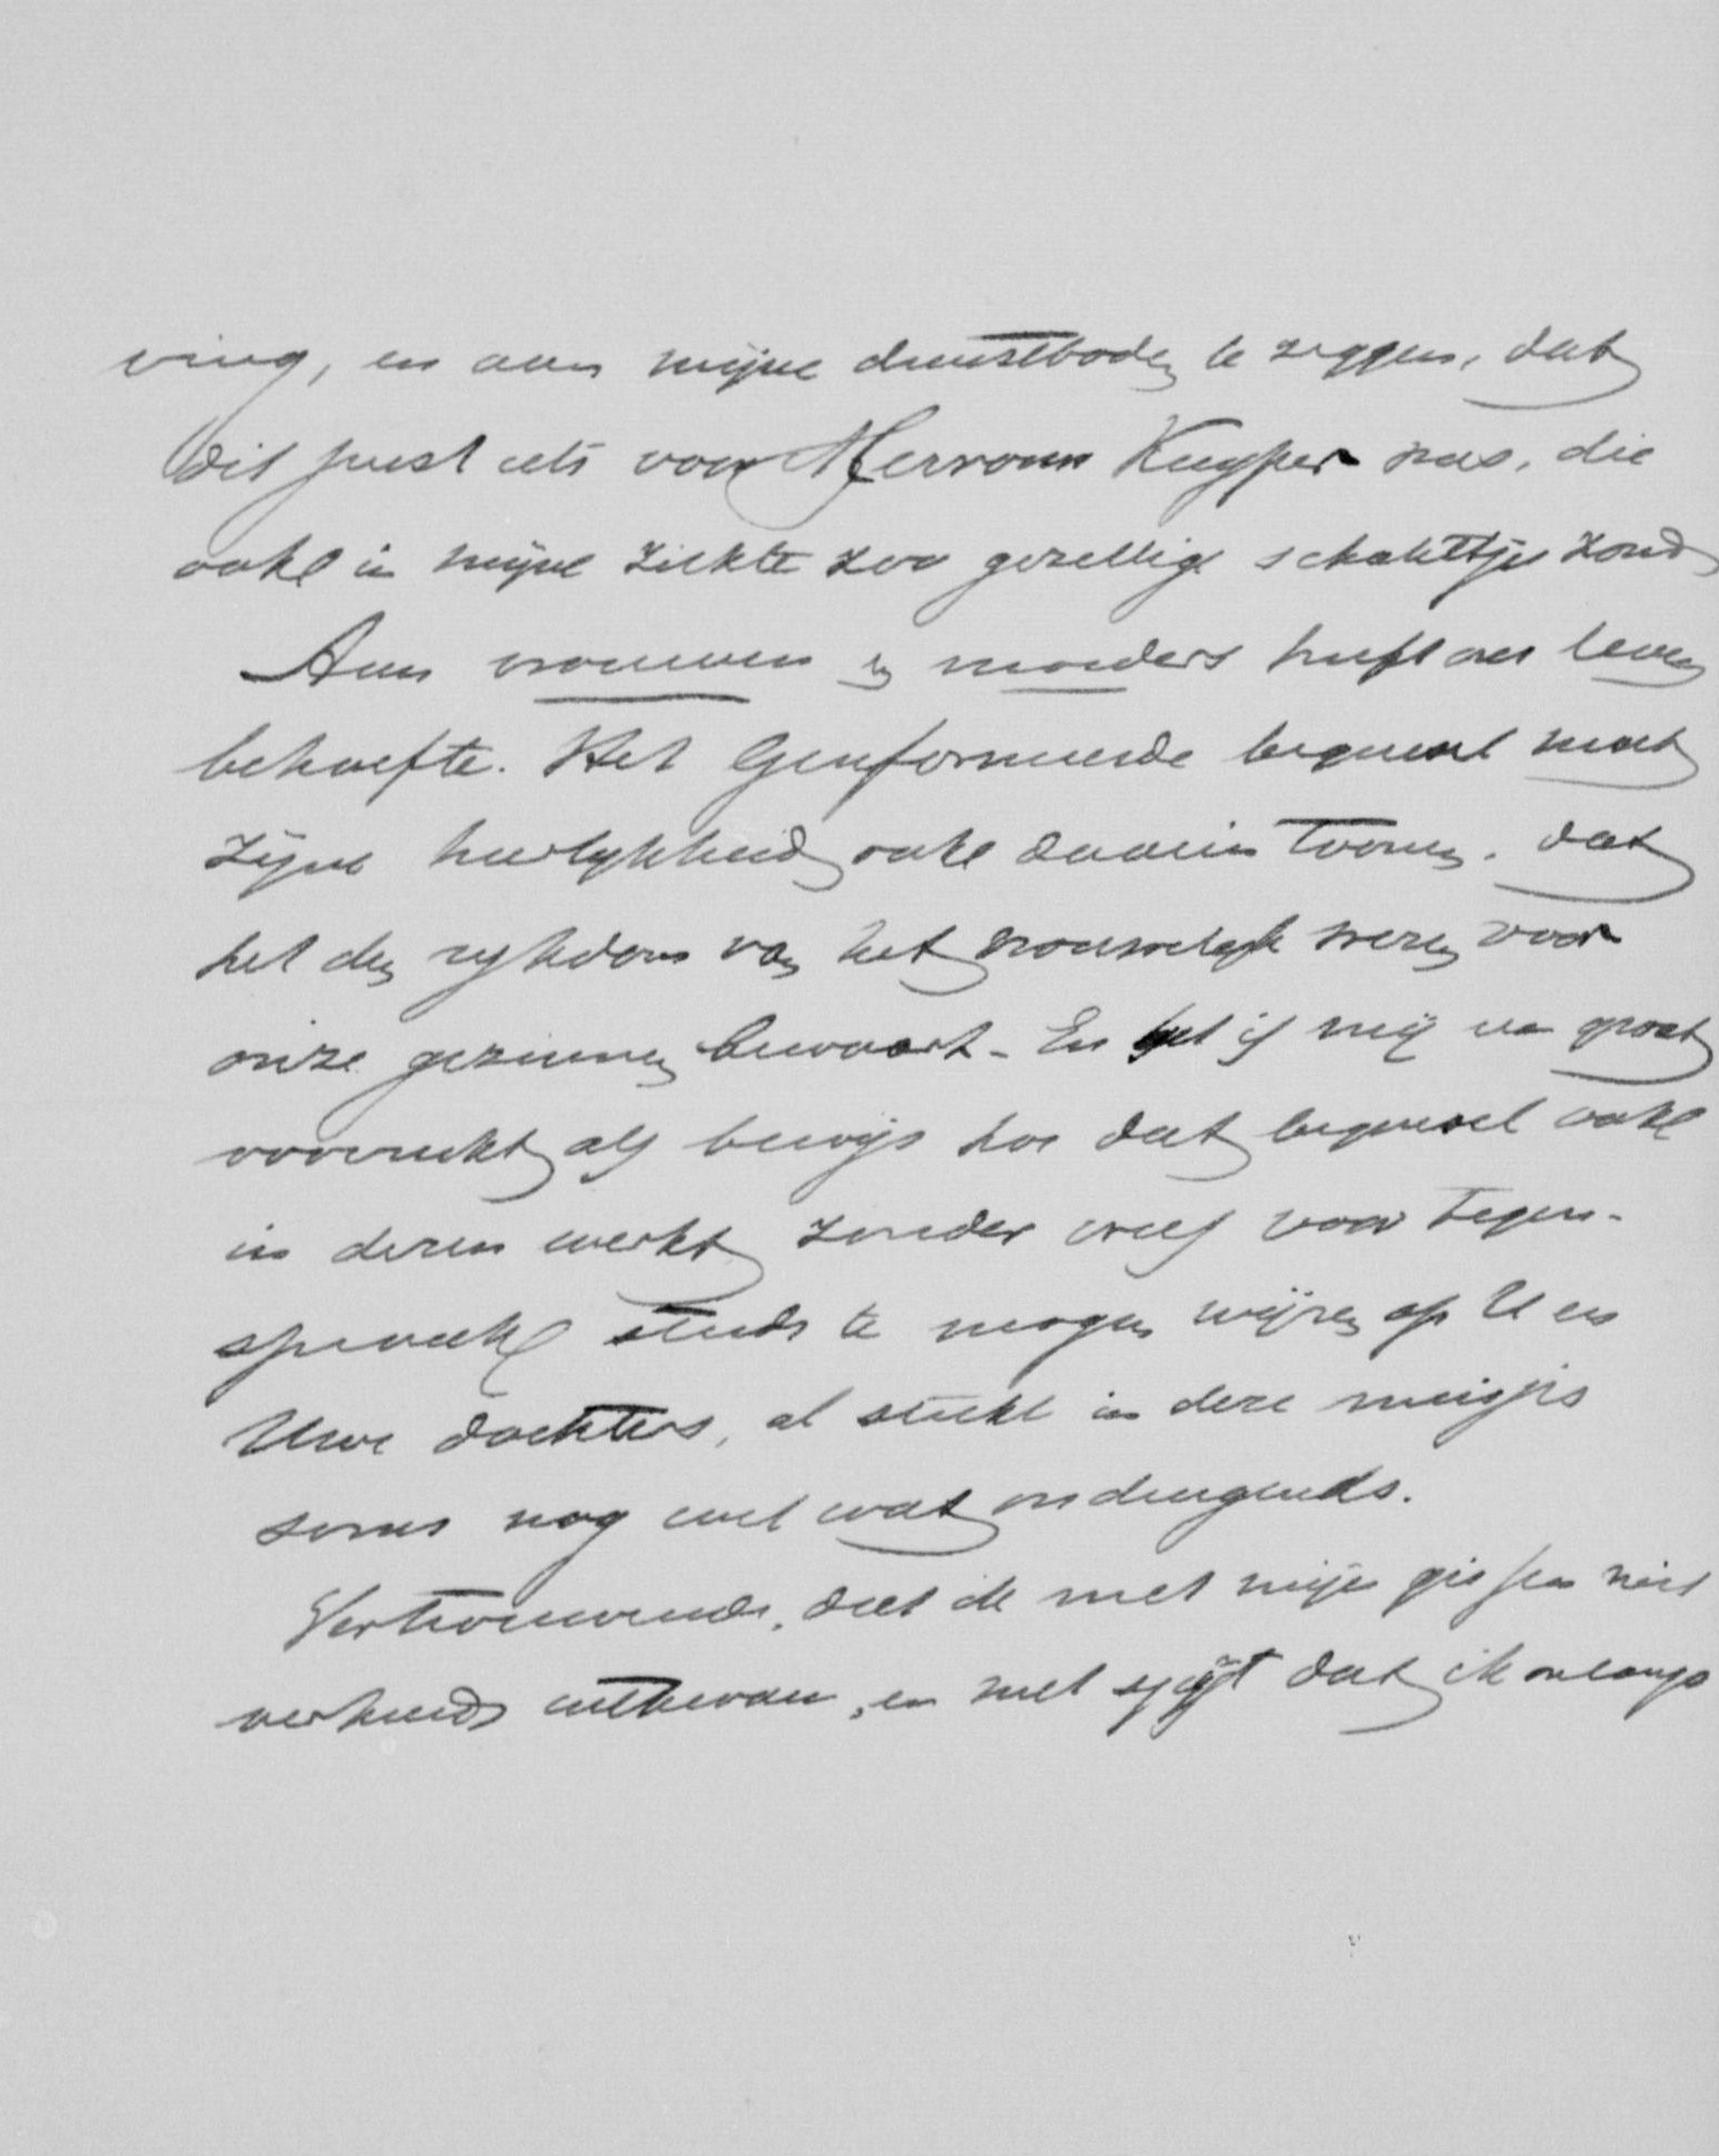 ving, en aan mijne dienstboden te zeggen, dat
dit juist iets voor Mevrouw Kuyper was, die
ook in mijne ziekte zoo gezellige schoteltjes zond
Aan vrouwen en moeders heeft ons leven
behoefte. Het Gereformeerde beginsel moet
zijne heerlijkheid ook daarin toonen, dat
het den rijkdom van het vrouwelijk wezen voor
onze gezinnen bewaart. En het is mij een groot
voorrecht als bewijs hoe dat beginsel ook
in dezen werkt zonder vrees voor tegen-
spraak steeds te mogen wijzen op U en
Uwe dochters, al steekt in deze meisjes
soms nog wel wat ondeugends.
Vertrouwende, dat ik met mijn gissen niet
verkeerd uitkwam, en met spijt dat ik onlangs